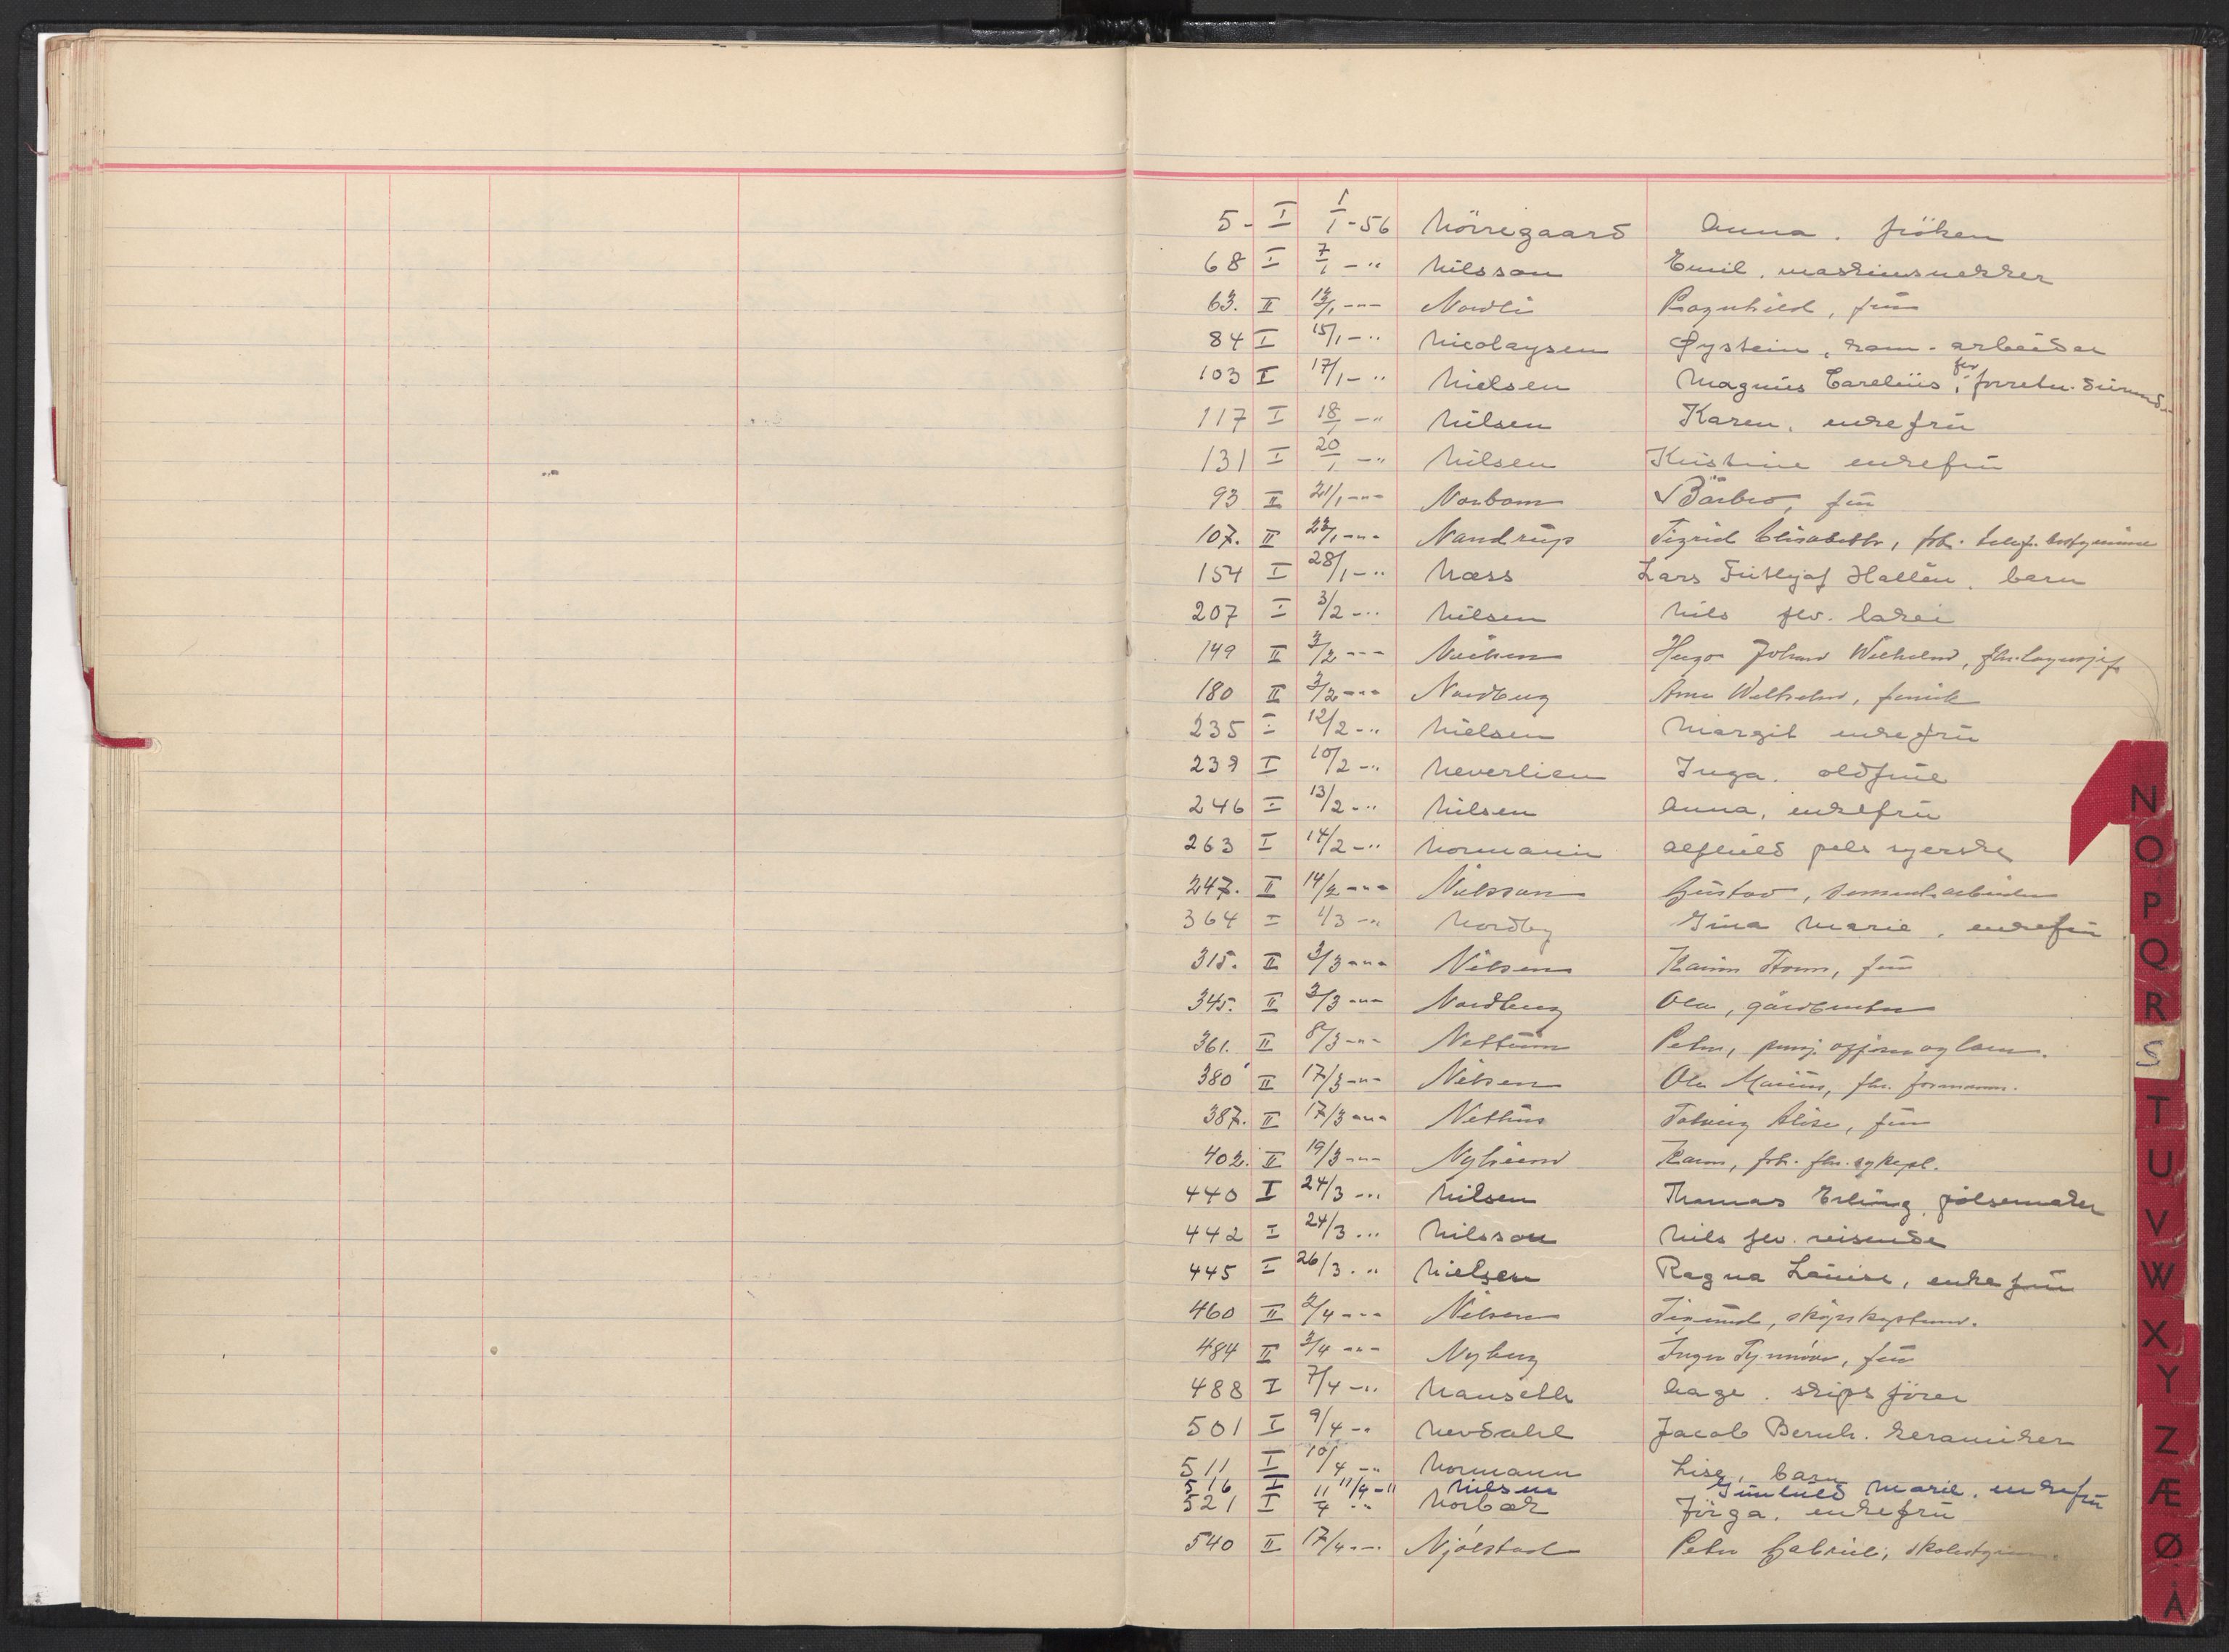 5- I 1/1-56 Nörregaard Anna. fröken
68 I 7/1 - " Nilsson Emil. maskinsnekker
63. II 13/1 - " - Nordli Ragnhild, frü
84 I 15/1 - " Nicolaysen Øystein, kom. arbeider
103 I 17/1 - " Nielsen Magnüs Careliüs, fhv. forretn.
117 I 18/1 - " Nilsen Karen. enkefrü
131 I 20/1 - " Nilsen Kristine enkefrü
93 II 21/1 - " - Norbom Bärbro, frü
107. II 23/1 - " - Nandrüp Sigrid Elisabeth, frk. telegr. bestyrerinne
154 I 28/1 - " Næss Lars Frithjof Hallén. barn
207 I 3/2 - " Nilsen Nils flv.
149 II 3/2 - " - Nielsen Hugo Johan Wilhelm, fhv. lagersjef
180 II 3/2 - " - Nordberg Arne Wilhelm,
235 I 12/2 - " Nielsen Margit enkefrü
239 I 10/2 - " Neverlien Inga. oldfrue
246 I 13/2 - " Nilsen Anna, enkefrü
263 I 14/2 - " Normann Alfhild pels syerske
247. II 14/2 - " - Nielsson Güstav, sementarbeider
364 I 1/3 - " Nordby Gina Marie, enkefrü
315. II 3/3 - " - Nilsen Karin frü
345. II 3/3 - " - Nordberg Ola, gårdbruker
361. II 8/3 - " - Nettüm Peter, pens.
380 II 17/3 - " - Nilsen Ole Mariüs, fhv. formann.
387. II 17/3 - " - Nethüs Solveig Alise, frü
402. II 19/3 - " - Nyhüüs Karen, frk. fhv. sykepl.
440 I 24/3 - " Nilsen Thomas Erling, pölsemaker
442 I 24/3 - " Nilsson Nils flv. reisende
445 I 26/3 - " Nielsen Ragna Loüise, enkefrü
460 II 2/4 - " - Nilsen Sigürd, skipskaptein.
484 II 3/4 - " - Nyberg Inger Synnöve, frü
488 I 7/4 - " Nauseth Aage. skips förer
501 I 9/4 - " Nevdahl Jacob Bernh. keramiker
511 I 10/4 - " Normann Lise, barn
516 I 11/4 - " Nilsen Günhild Marie. enkefrü
521 I 11/4 - " Norbæk Jörga. enkefrü
540 II 17/4 - " - Njölstad Peter Gabriel, skolestyrer.
N
O
P
Q
R
S
T
U
V
W
X
Y
Z
Æ
Ø
Å